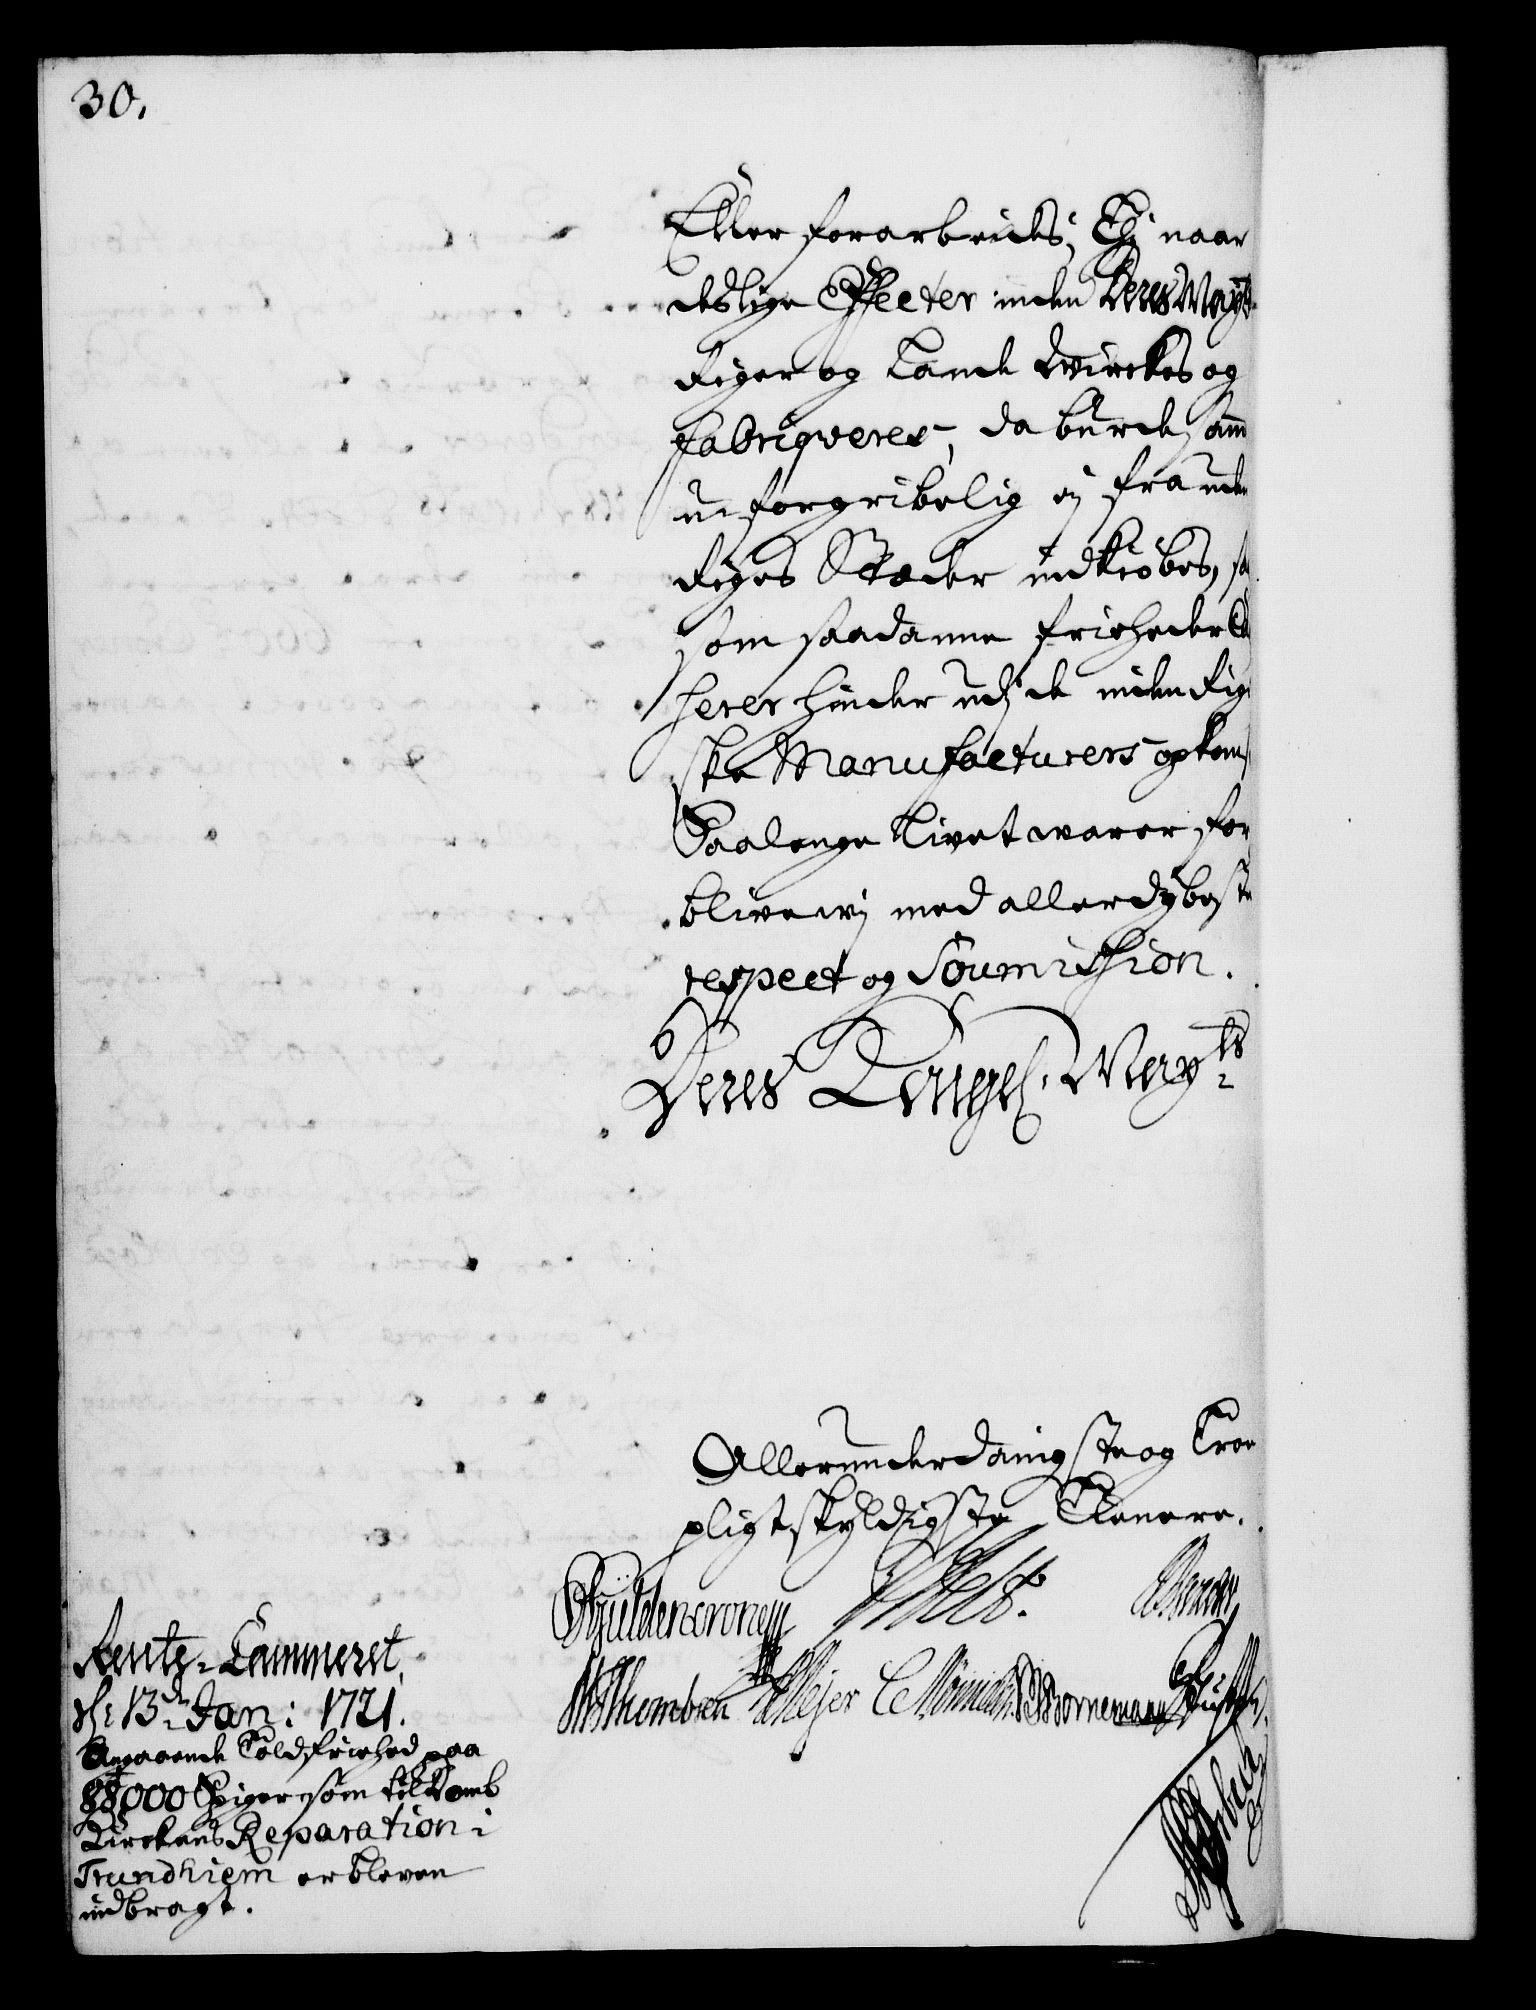 30.
Eller forarbeides; Thi naar
deslige Effecter inden Deres Mayts
Riger og Lande Virckes og
fabriqveres, da burde samme
uforgribelig ej fra uden
Riges Stæder indkiøbes, saa
som saadanne friheder
hinder udj de inden Rig
ske Manufacturers opkomst
Saalenge Livet warer for
blive wj med allerdybeste
respect og Soumission.
Deres Kongel. Mayts
Allerunderdanigste og Troe
pligtskyldigste Tienere.
Güldencrone
W Thombsen Mejer C Mönnichen Bornemann
Rente-Cammeret,
d: 13de Jan: 1721.
Angaaende Toldfriehed paa
88000 Spiger som til Domb
Kirckens Reparation i
Trundhiem er bleven
indbragt.